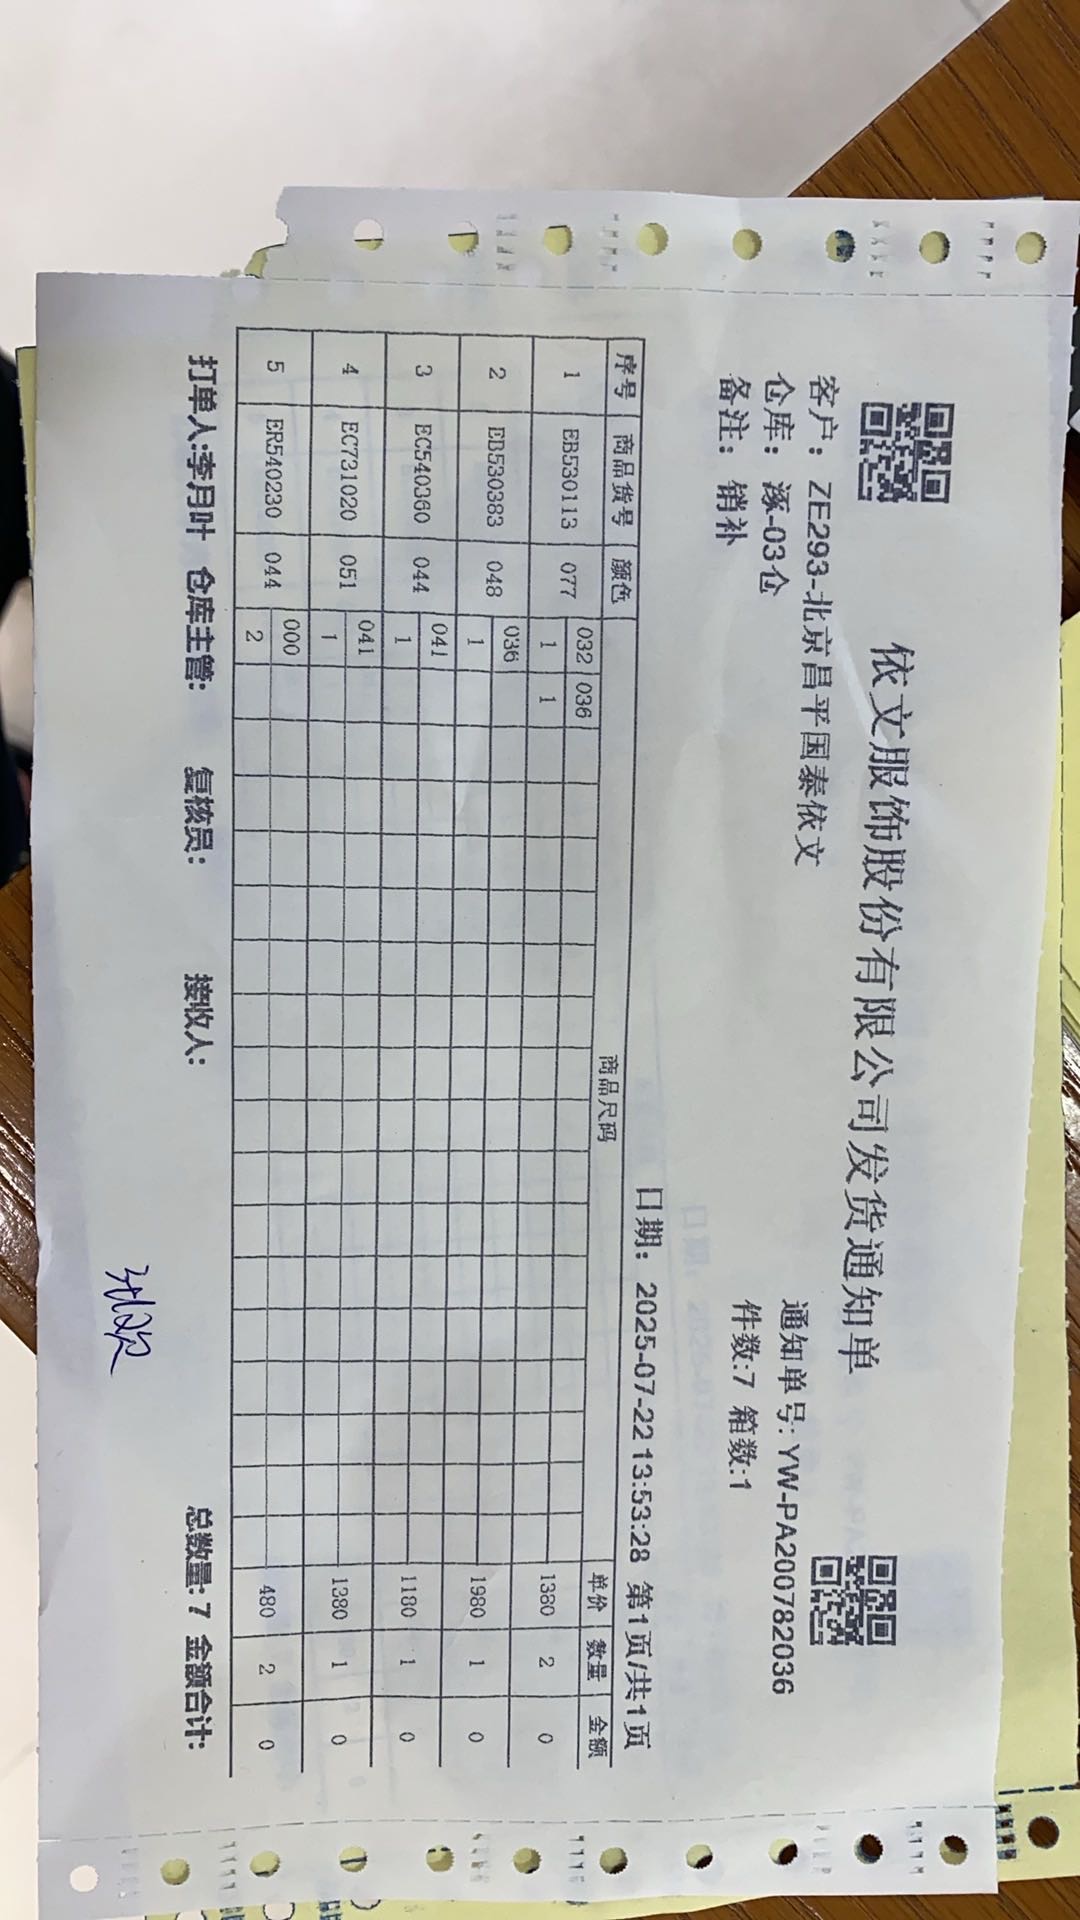 依文服饰股份有限公司发货通知单
客户：ZE293-北京昌平国泰依文
通知单号: YW-PA200782036
仓库：涿-03仓
件数:7 箱数:1
备注：销补
日期：2025-07-22 13:53:28 第1页/共1页
序号 商品货号 颜色 商品尺码 单价 数量 金额
032 036
1 EB530113 077 1 1 1380 2 0
036
2 EB530383 048 1 1980 1 0
041
3 EC540360 044 1 1180 1 0
041
4 EC731020 051 1 1380 1 0
000
5 ER540230 044 2 480 2 0
打单人:李月叶 仓库主管: 复核员: 接收人: 总数量: 7 金额合计: